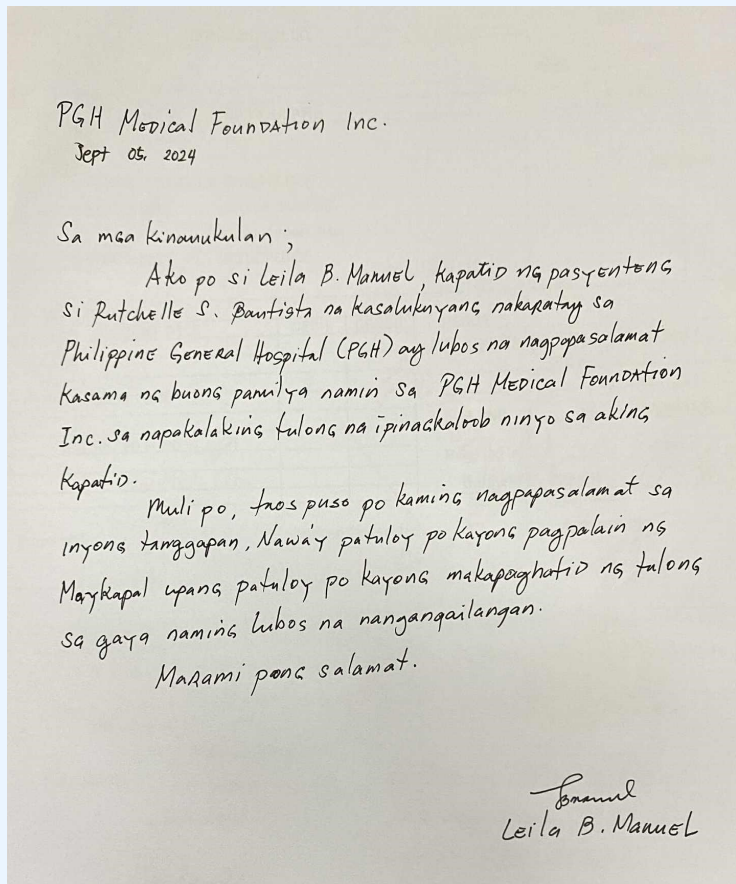 PGH Medical Foundation Inc.
Sept 05, 2024
Sa mga kinauukulan ;
Ako po si Leila B. Manuel, kapatid ng pasyenteng
si Rutchelle S. Bautista na kasalukuyang nakaratay sa
Philippine General Hospital (PGH) ay lubos na nagpapasalamat
kasama ng buong pamilya namin sa PGH Medical Foundation
Inc. sa napakalaking tulong na ipinagkaloob ninyo sa aking
kapatid.
Muli po, taos puso po kaming nagpapasalamat sa
inyong tanggapan, Naway patuloy po kayong pagpalain ng
Maykapal upang patuloy po kayong makapaghatid ng tulong
sa gaya naming lubos na nangangailangan.
Marami pong salamat.
Leila B. Manuel